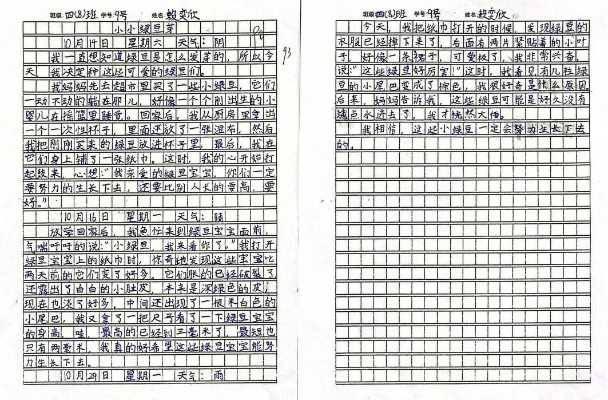 班级 四(8)班 学号 9号 姓名 赖奕欣
小小绿豆芽
10月14日 星期六 天气:阴
我一直想知道绿豆是怎么发芽的,所以今
天,我决定种这些可爱的绿豆们。
我妈妈先去超市里买了一些小绿豆,它们
一动不动的躺在那儿,好像一个个刚出生的小
婴儿在摇篮里睡觉。回家后,我从厨房里拿出
一个一次性杯子,里面还放了一张湿布,然后
我把刚刚买来的绿豆放进杯子里,最后,我在
它们身上铺了一张纸巾,这时,我的心开始打
起鼓来,心想:“我亲爱的绿豆宝宝,你们一定
要努力的生长下去,还要比别人长的要高,要
好。”
10月16日 星期一 天气:阴
放学回家后,我急忙来到绿豆宝宝面前,
气喘吁吁的说:“小绿豆,我来看你了。”我打开
绿豆宝宝上的纸巾时,惊奇地发现这些宝宝比
两天前的它们变了好多,它们胀的已经破裂了,
还露出了白白的小肚皮,本来是深绿色的皮,
现在也淡了好多,中间还出现了一根米白色的
小尾巴,我又拿了一把尺子看了一下绿豆宝宝
的身高,哇,最高的已经到三毫米了,最短也
只有两毫米,我真的好希望这些绿豆宝宝能努
力生长下去。
10月29日 星期一 天气:雨
93
班级 四(8)班 学号 9号 姓名 赖奕欣
今天,我把纸巾打开的时候,发现绿豆的
衣服已经掉下来了,后面有两片紧贴着的小叶
子,好像一条裙子,可爱极了,我非常兴奋,
说:“这些绿豆好厉害!”这时,我看见有几粒绿
豆的小尾巴变成了棕色,我很好奇是什么原因
后来,妈妈告诉我,这些绿豆可能是好久没有
水进去了,我才恍然大悟。
我相信,这些小绿豆一定会努力生长下去
的。